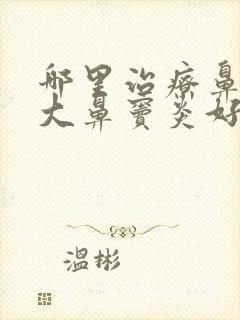 哪里治疗鼻
大鼻窦炎好
温彬